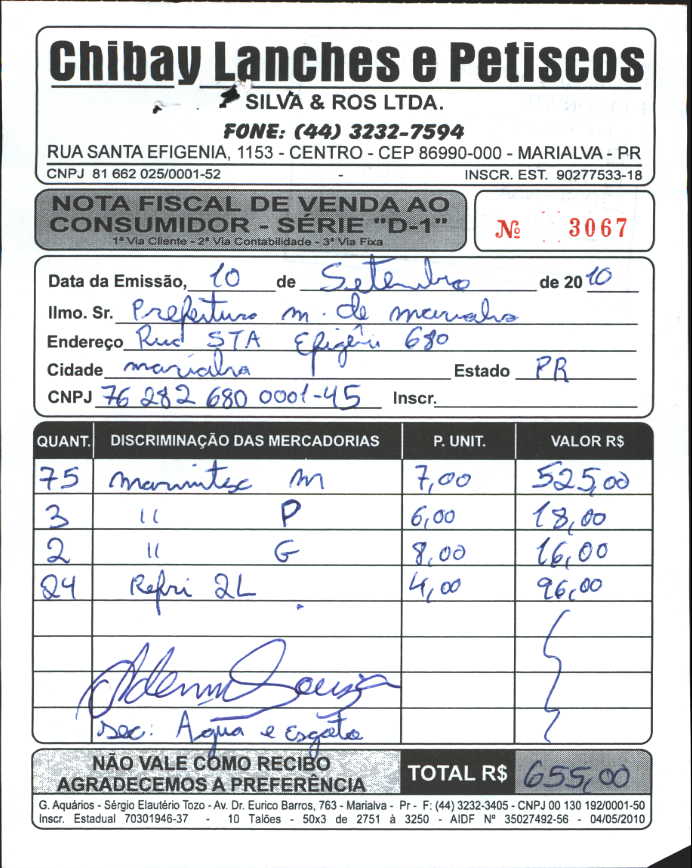 Chibay Lanches e Petiscos
SILVA & ROS LTDA.
FONE: (44) 3232-7594
RUA SANTA EFIGENIA, 1153 - CENTRO - CEP 86990-000 - MARIALVA - PR
CNPJ 81 662 025/0001-52 - INSCR. EST. 90277533-18
NOTA FISCAL DE VENDA AO
CONSUMIDOR - SÉRIE "D-1"
1ª Via Cliente - 2ª Via Contabilidade - 3ª Via Fixa
Nº 3067
Data da Emissão, 10 de Setembro de 2010
Ilmo. Sr. Prefeitura m. de marialva
Endereço Rua STA Efigênia 680
Cidade marialva Estado PR
CNPJ 76 282 680 0001-45 Inscr.
QUANT. DISCRIMINAÇÃO DAS MERCADORIAS P. UNIT. VALOR R$
75 marmitex M 7,00 525,00
3 " P 6,00 18,00
2 " G 8,00 16,00
24 Refri 2L 4,00 96,00
Souza
Sec: Agua e Esgoto
NÃO VALE COMO RECIBO
AGRADECEMOS A PREFERÊNCIA
TOTAL R$ 655,00
G. Aquários - Sérgio Elautério Tozo - Av. Dr. Eurico Barros, 763 - Marialva - Pr - F: (44) 3232-3405 - CNPJ 00 130 192/0001-50
Inscr. Estadual 70301946-37 - 10 Talões - 50x3 de 2751 à 3250 - AIDF Nº 35027492-56 - 04/05/2010